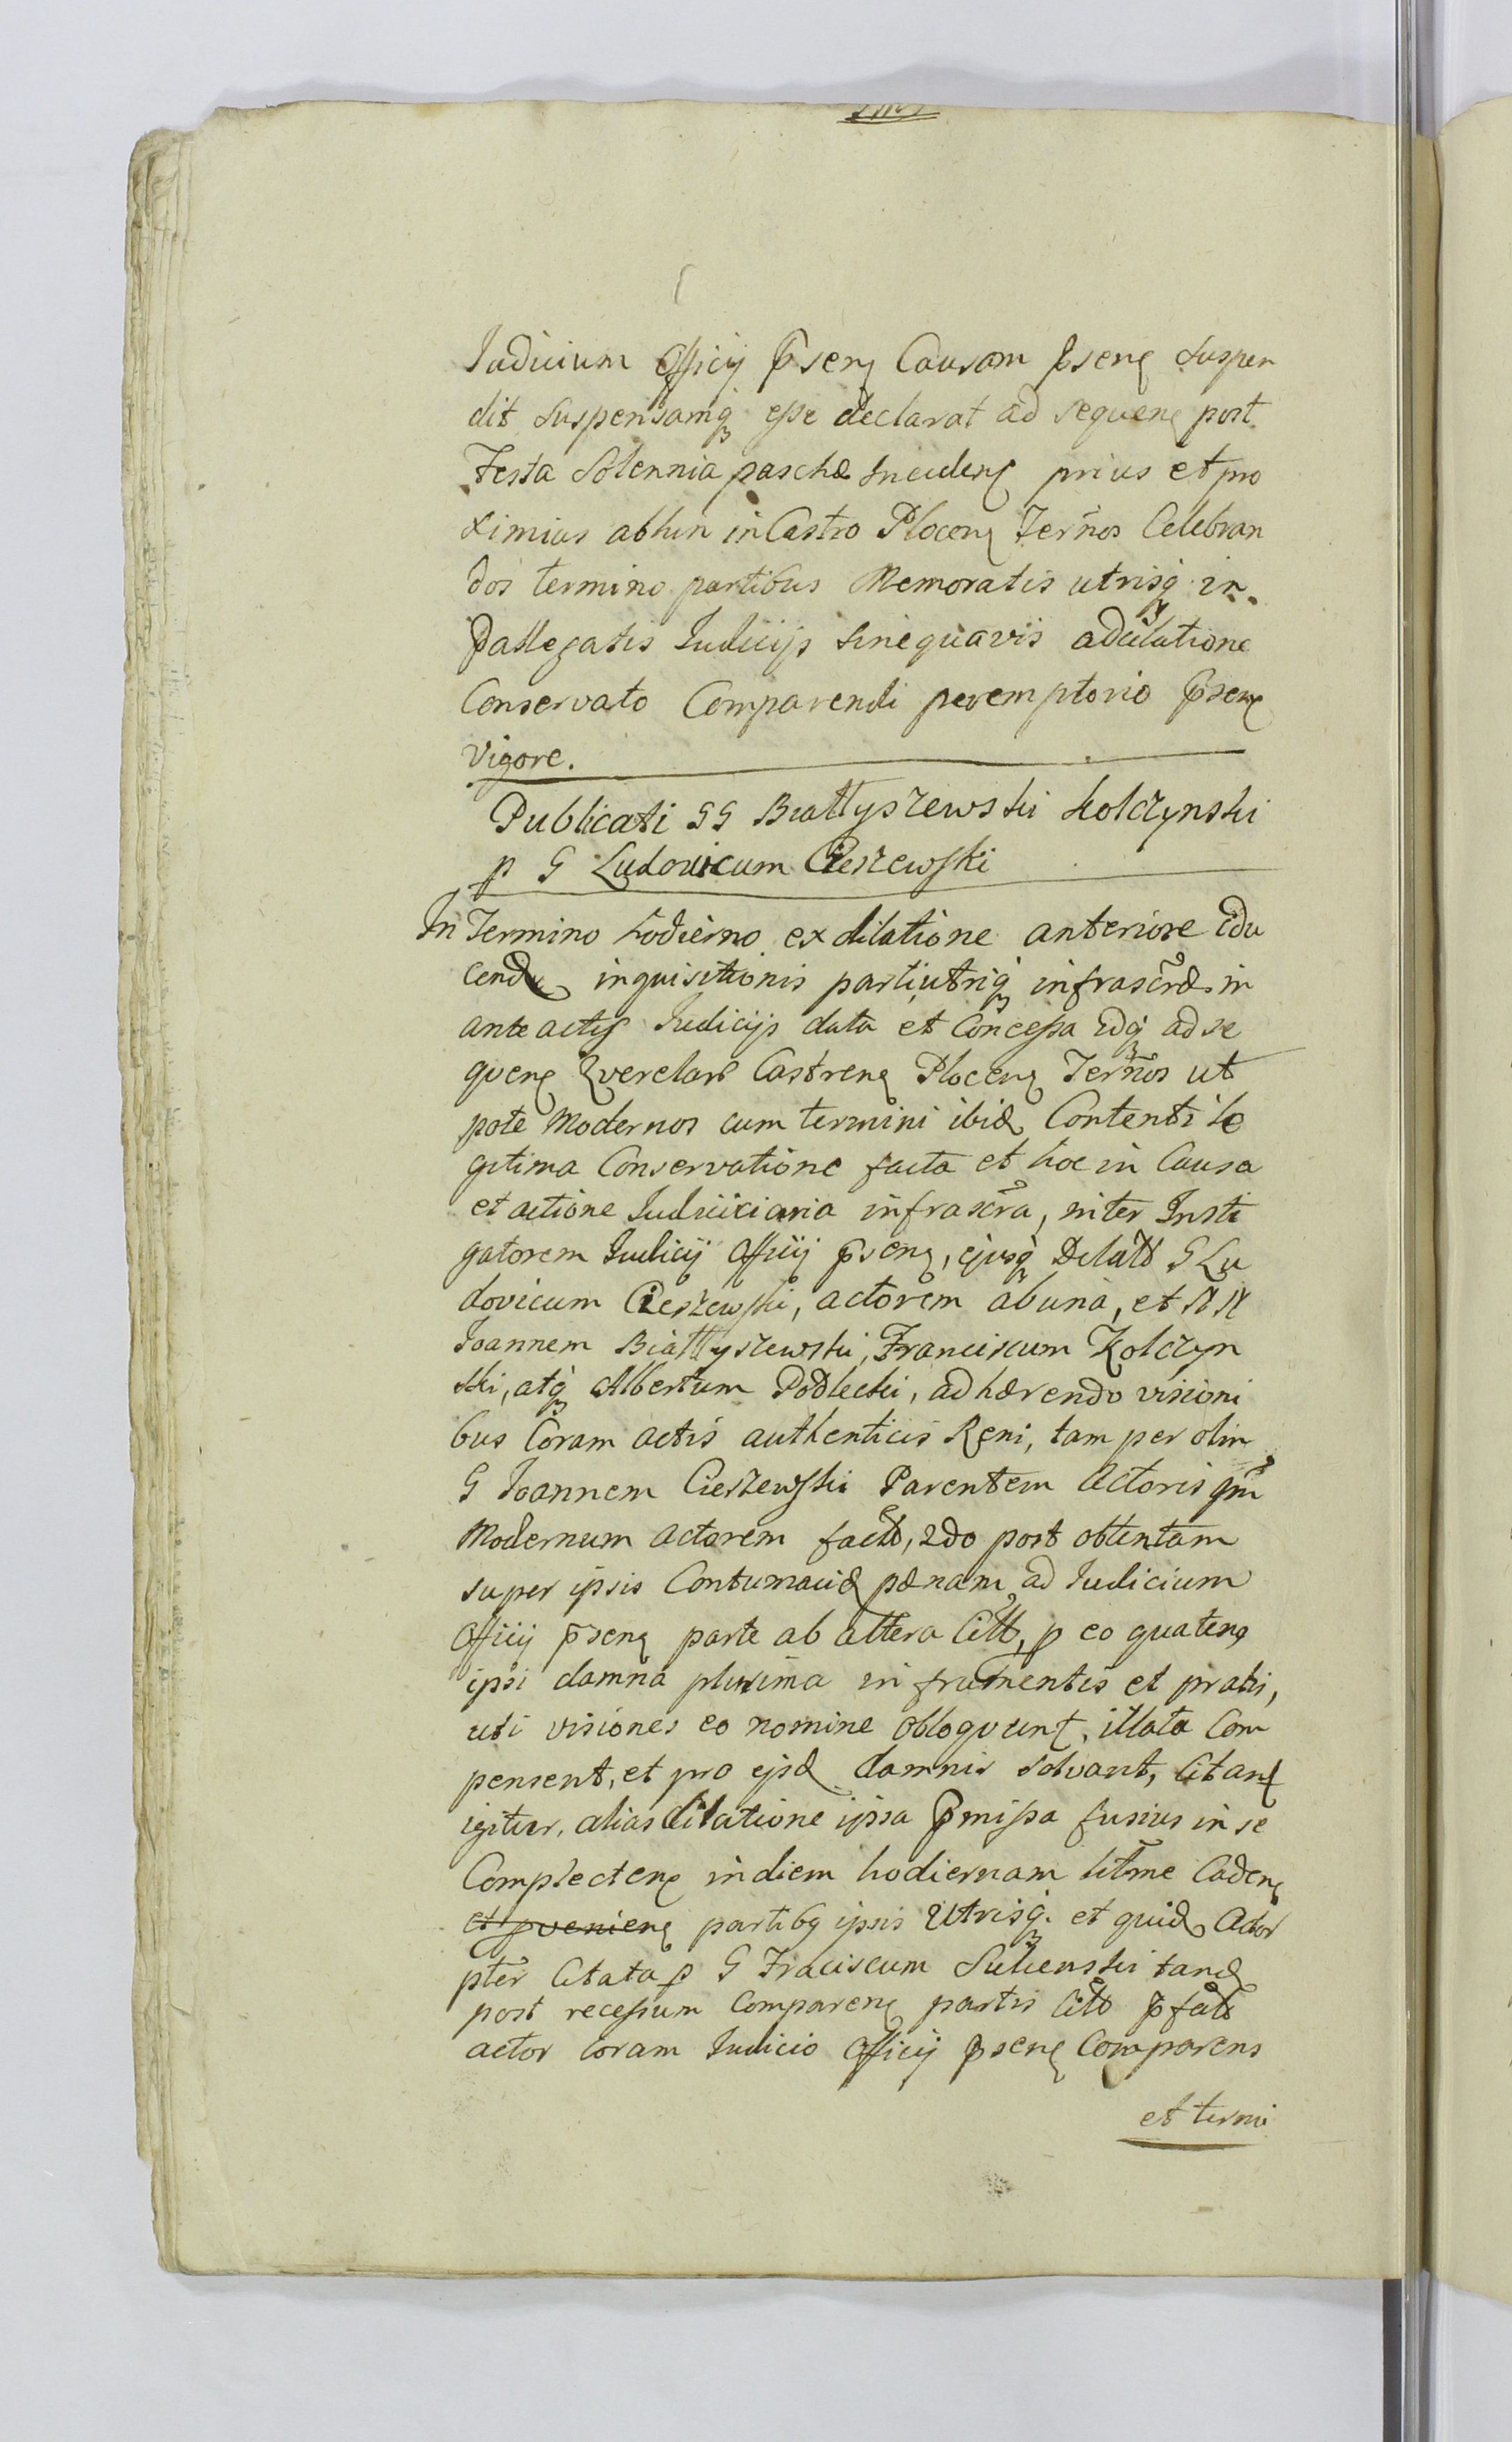 Iudicium Officij p̃senꝭ Causam p̃senꝭ suspen
dit suspensamqꝫ esse declarat ad sequenꝭ post
Festa Solennia paschæ Incidenꝭ prius et pro
ximius abhin in Castro Plocenꝭ Ter̃nos Celebran
dos termino partibus Memoratis utrisqꝫ in
p̃allegatis Iudicijs sine quavis adcitatione
Conservato Comparendi peremptorio p̃senꝭ
vigore.
Publicati GG Białłyszewski Kolczynski
p G Ludovicum Cieszewski
In Termino hodierno ex dilatione anteriore edu
cendæ inquisitionis parti utriqꝫ infrascrõ in
ante actis Iudicijs data et Concessa idqꝫ ad se
quenꝭ Querelarũ Castrenꝭ Plocenꝭ Ter̃nos ut
pote Modernos cum termini ibid Contenti le
gitima Conservatione facta et hoc in Causa
et actione Iudiciciaria infrascra, inter Insti
gatorem Iudicij Officij p̃senꝭ, ejusqꝫ Delatõ G Lu
dovicum Cieszewski, actorem ab una, et NN
Joannem Białłyszewski, Franciscum Kolczyn
ski, atqꝫ Albertum Podlecki, adhærendo visioni
bus Coram actis authenticis Regni, tam per olim
G Joannem Cieszewski Parentem Actoris qm̃
Modernum actorem factõ, 2do post obtentam
super ipsis Contumaciæ pænam, ad Iudicium
Officij p̃senꝭ parte ab altera Citõ, p eo quatenꝭ
ipsi damna plurima in frumentis et pratis,
uti visiones eo nomine obloquunt, illata Com
pensent, et pro ejsd damnis solvant, Citanꝭ
igitur, alias Citatione ipsa p̃missa fusius in se
Complectenꝭ in diem hodiernam litm̃e Cadenꝭ
et pvenienꝭ partibꝯ ipsis Utrisqꝫ et quid Actor
pter̃ Citata p G Fraciscum Sulienski tand
post recessum Comparenꝭ partis Citõ p̃fatõ
actor Coram Iudicio Officij p̃senꝭ Comparens
et termi